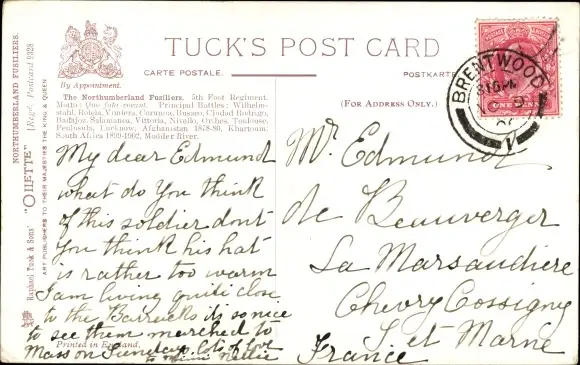 TUCK'S POST CARD
CARTE POSTALE.
POSTKARTE
By Appointment.
(FOR ADDRESS ONLY.)
The Northumberland Fusiliers. 5th Foot Regiment.
Motto: Quo fata vocant. Principal Battles: Wilhelm-
stahl, Roleia, Vimiera, Corunna, Busaco, Ciudad Rodrigo,
Badajoz, Salamanca, Vittoria, Nivelle, Orthes, Toulouse,
Peninsula, Lucknow, Afghanistan 1878-80, Khartoum,
South Africa 1899-1902, Modder River.
My dear Edmund
what do You think
of this soldier dont
You think his hat
is rather too warm
I am living quite close
to the Barracks its so nice
to see them marched to
Mass on Sunday lots of love
to Nellie
Printed in England.
Mr. Edmund
de Beauverger
La Marsaudiere
Chevry Cossigny
S et Marne
France
BRENTWOOD
ONE PENNY
Raphael Tuck & Sons' "OILETTE" [Regd. Postcard 9328
NORTHUMBERLAND FUSILIERS.
ART PUBLISHERS TO THEIR MAJESTIES THE KING & QUEEN